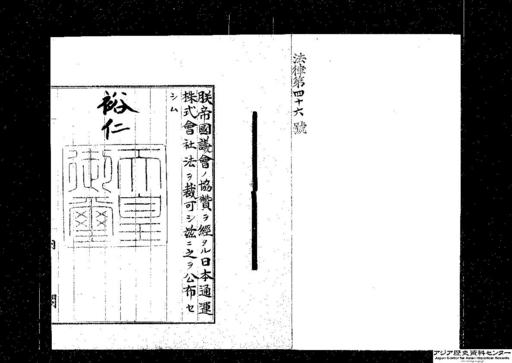 法律第四十六號
朕帝國議會ノ協贊ヲ經タル日本通運
株式會社法ヲ裁可シ玆ニ之ヲ公布セ
シム
裕仁
天皇
御璽
内
閣
アジア歴史資料センター
Japan Center for Asian Historical Records